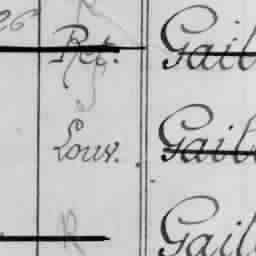 26 Ret. Gail
Louv. Gail
R Gail